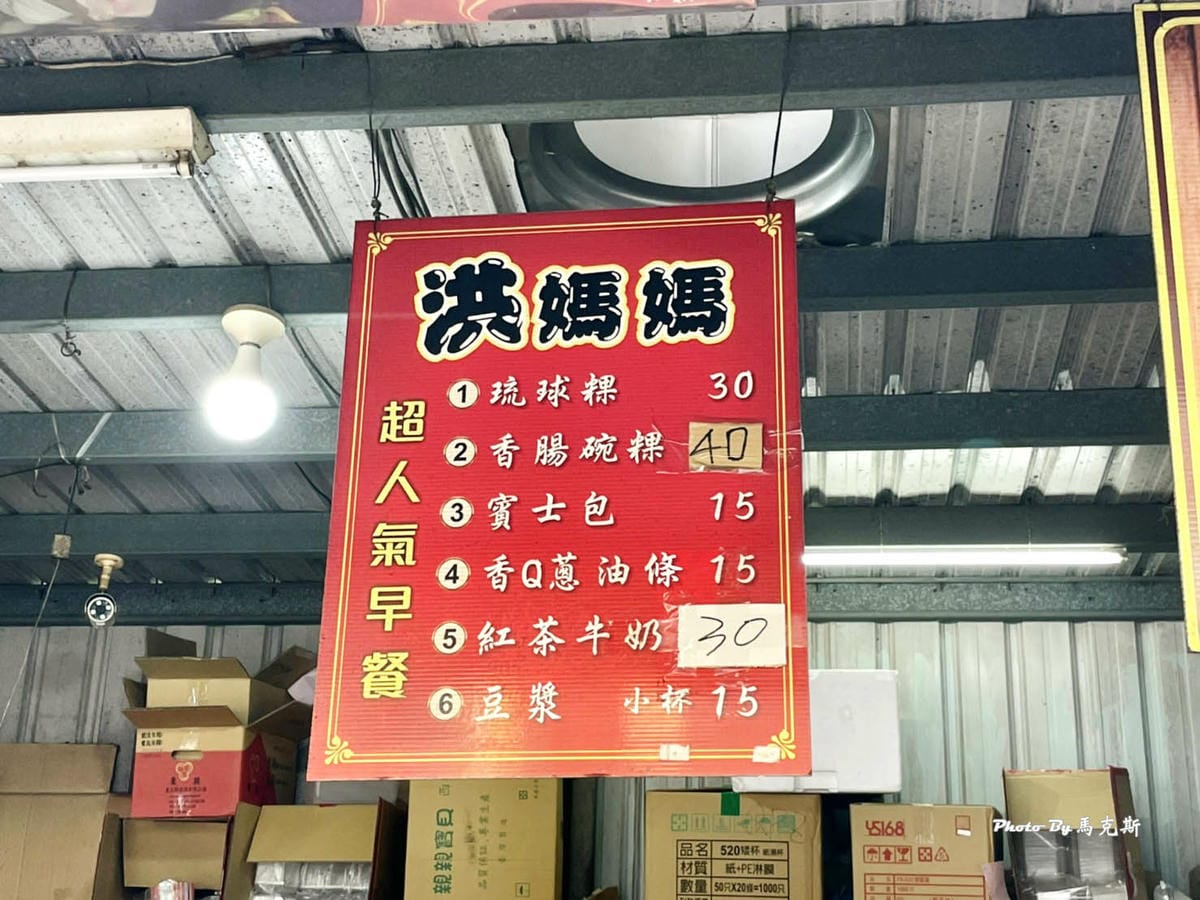 洪媽媽
超人氣早餐
1 琉球粿 30
2 香腸碗粿 40
3 賓士包 15
4 香Q蔥油條 15
5 紅茶牛奶 30
6 豆漿 小杯 15
親親寶貝
品名 520矮杯
材質 紙+PE淋膜
數量 50只X20條=1000只
YS168
Photo By 馬克斯